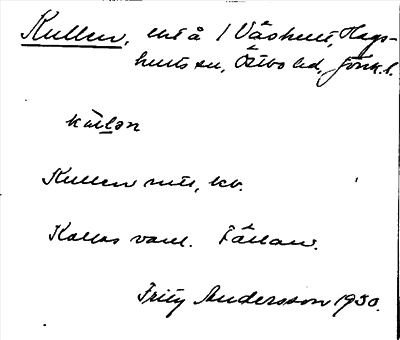 Kullen, ent å 1 Våshult, Hags-
hults sn, Östbo hd, Jönk. l.
kɯ̀lən
Kullen mtl, kv.
Kallas vanl. Fållan.
Fritz Andersson 1930.